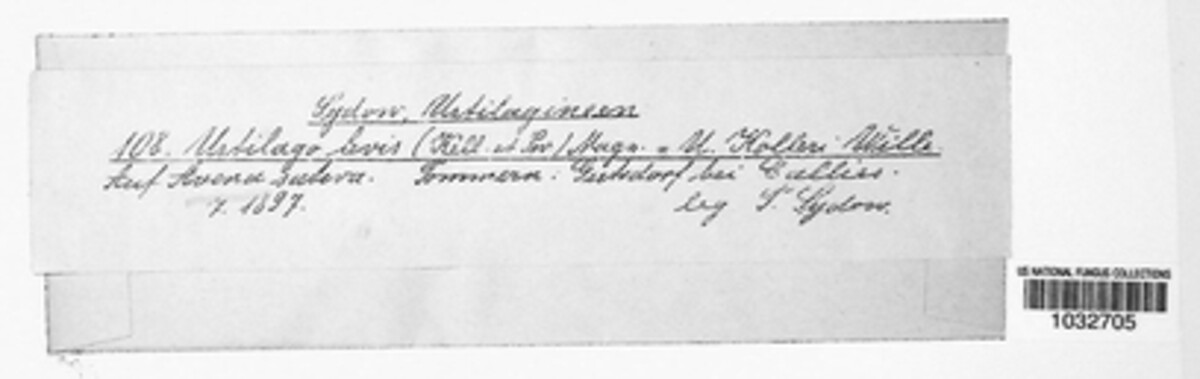 Sydow, Ustilagineen
108. Ustilago levis (Kell. et Sw.) Magn. = U. Kolleri Wille.
Auf Avena sativa. Pommern: bei Callies.
7. 1897. leg P. Sydow.
US NATIONAL FUNGUS COLLECTIONS
1032705